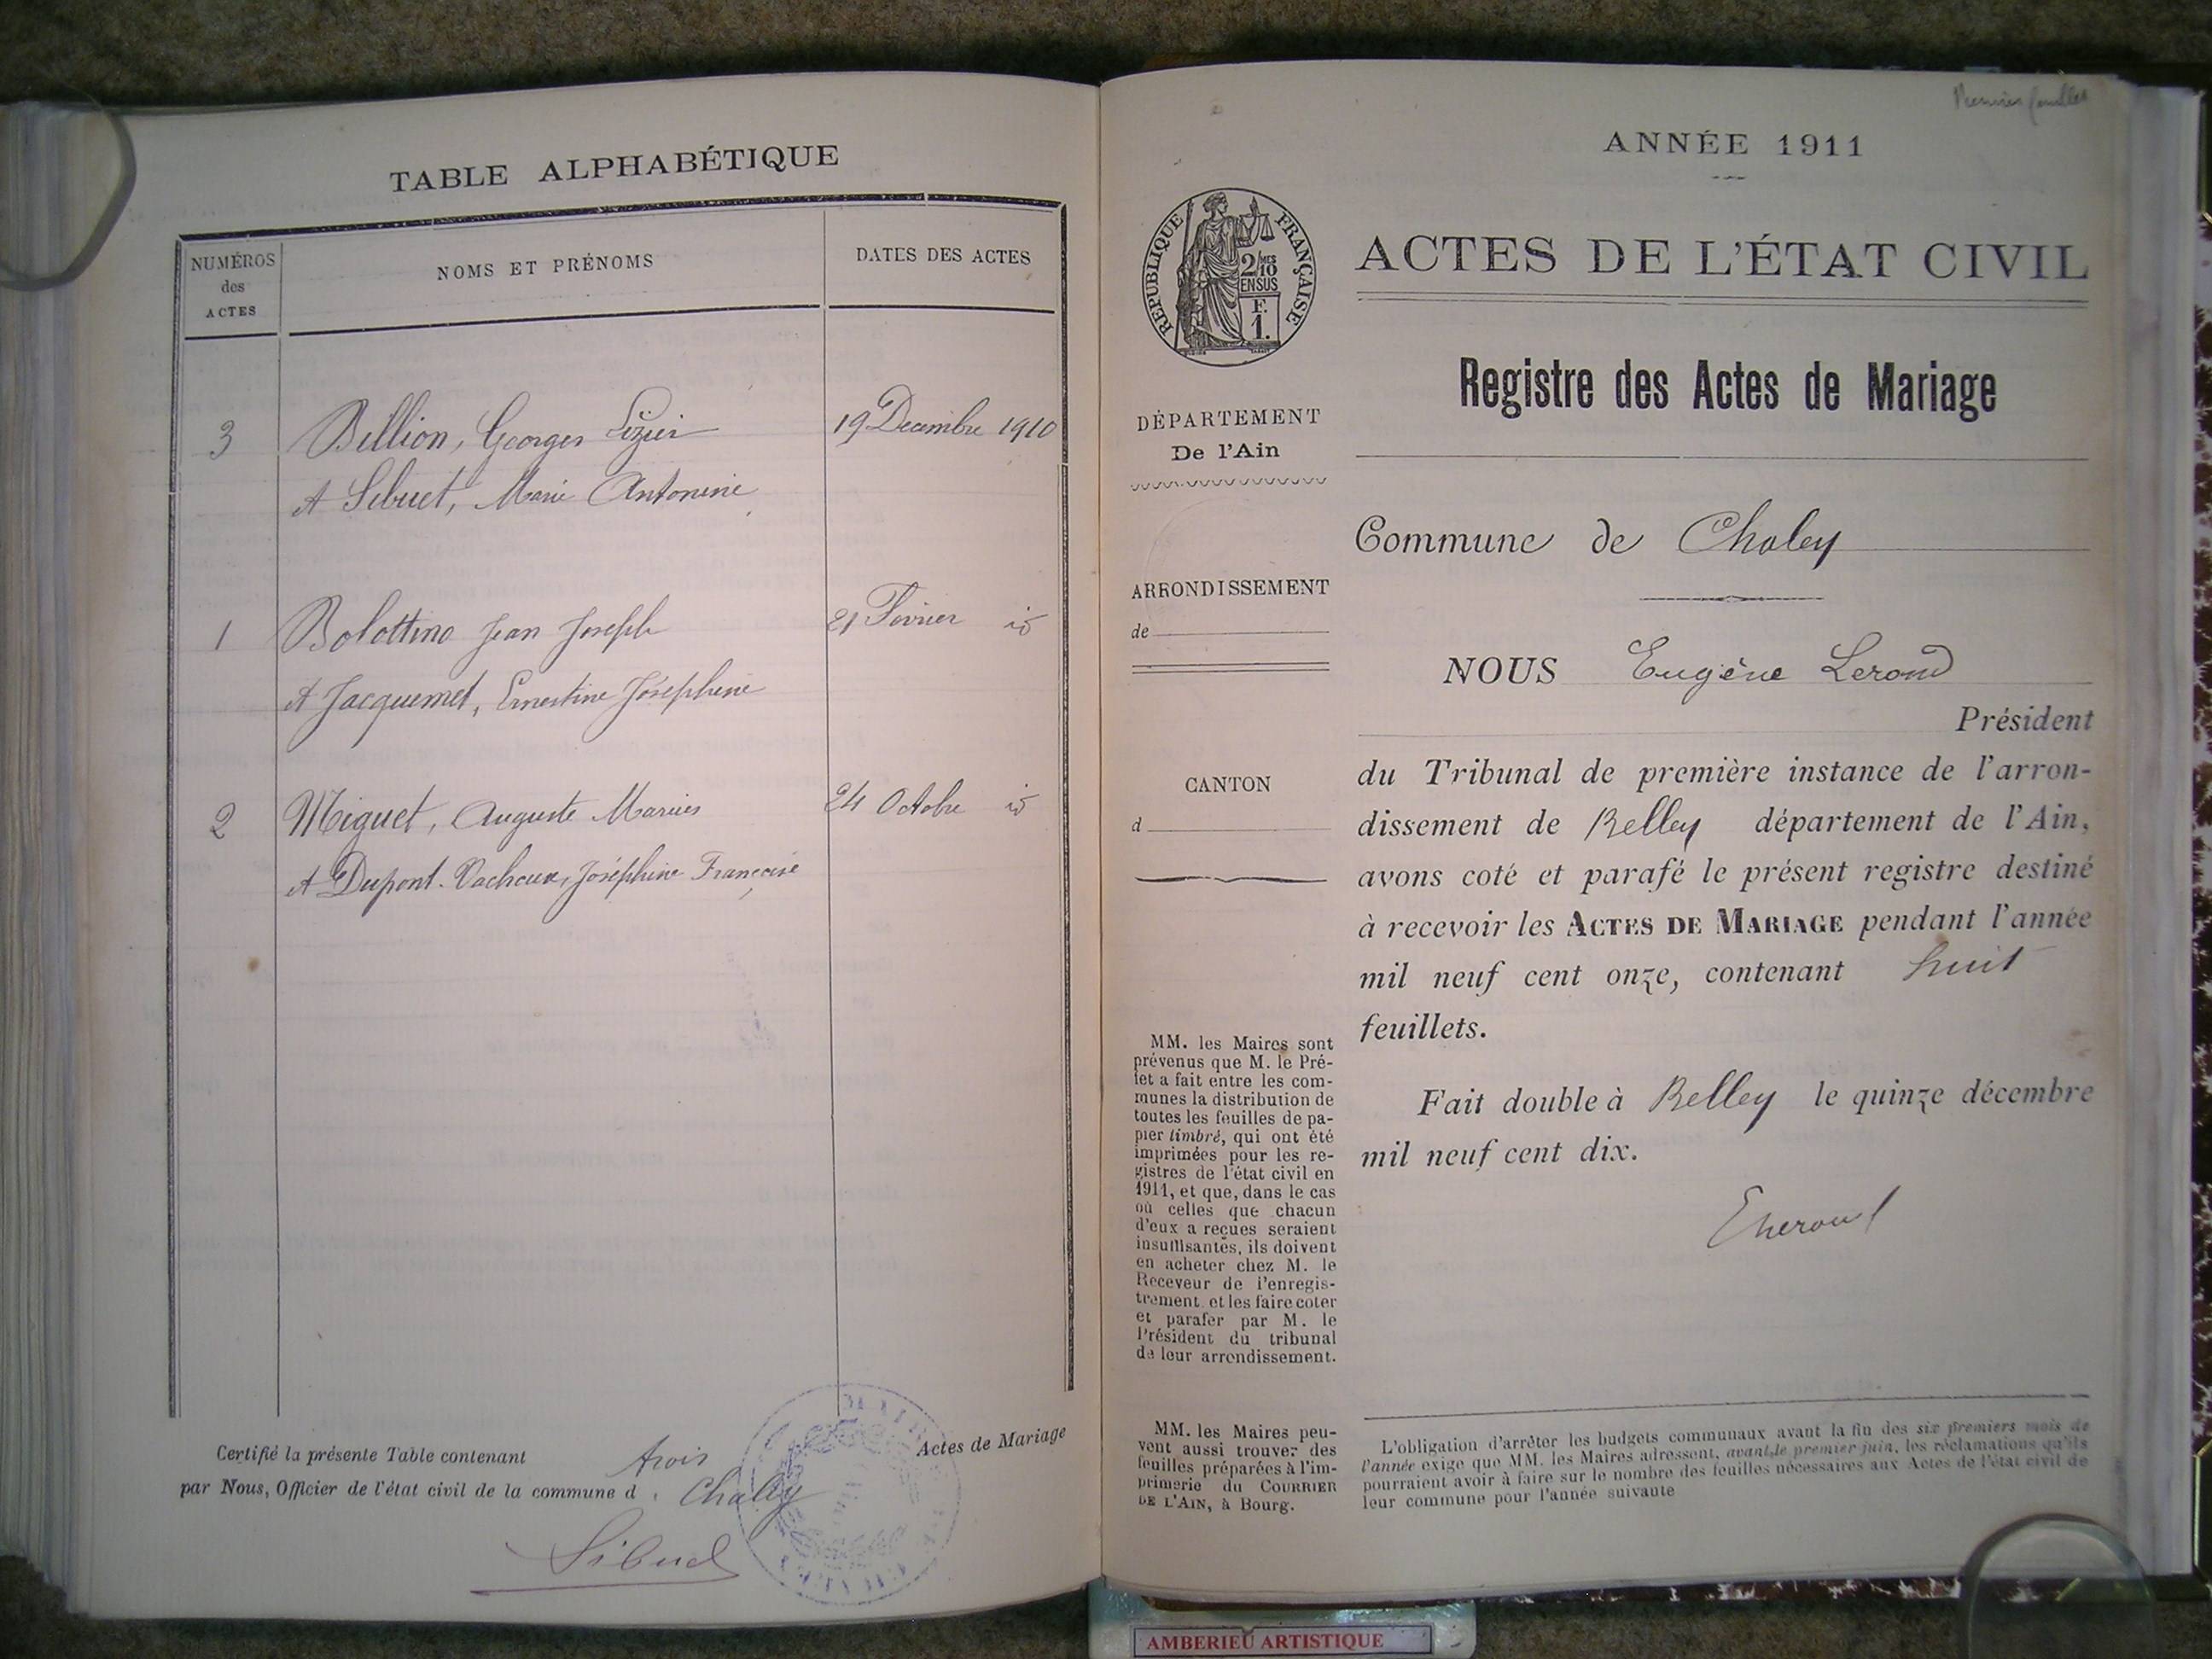 TABLE ALPHABÉTIQUE
NUMÉROS
des
ACTES
NOMS ET PRÉNOMS
DATES DES ACTES
3
Billion, Georges Lizier
19 Decembre 1910
et Sibuet, Marie Antonine
1
Bolottino Jean Joseph
21 Fevrier id
et Jacquemet, Ernestine Joséphine
2
Miguet, Auguste Marius
24 Octobre id
et Dupont-Vachoux, Joséphine Françoise
Certifié la présente Table contenant trois Actes de Mariage
par Nous, Officier de l'état civil de la commune d Chaley
Sibuet
Premières feuilles
ANNÉE 1911
RÉPUBLIQUE FRANÇAISE
2/10 MES
EN SUS
F.
1.
ACTES DE L'ÉTAT CIVIL
Registre des Actes de Mariage
DÉPARTEMENT
De l'Ain
ARRONDISSEMENT
de
CANTON
d
MM. les Maires sont
prévenus que M. le Pré-
fet a fait entre les com-
munes la distribution de
toutes les feuilles de pa-
pier timbré, qui ont été
imprimées pour les re-
gistres de l'état civil en
1911, et que, dans le cas
où celles que chacun
d'eux a reçues seraient
insuffisantes, ils doivent
en acheter chez M. le
Receveur de l'enregis-
trement et les faire coter
et parafer par M. le
Président du tribunal
de leur arrondissement.
MM. les Maires peu-
vent aussi trouver des
feuilles préparées à l'im-
primerie du COURRIER
DE L'AIN, à Bourg.
Commune de Chaley
NOUS Eugène Lerond
Président
du Tribunal de première instance de l'arron-
dissement de Belley département de l'Ain,
avons coté et parafé le présent registre destiné
à recevoir les ACTES DE MARIAGE pendant l'année
mil neuf cent onze, contenant huit
feuillets.
Fait double à Belley le quinze décembre
mil neuf cent dix.
L'obligation d'arrêter les budgets communaux avant la fin des six premiers mois de
l'année exige que MM. les Maires adressent, avant le premier juin, les réclamations qu'ils
pourraient avoir à faire sur le nombre des feuilles nécessaires aux Actes de l'état civil de
leur commune pour l'année suivante
AMBERIEU ARTISTIQUE